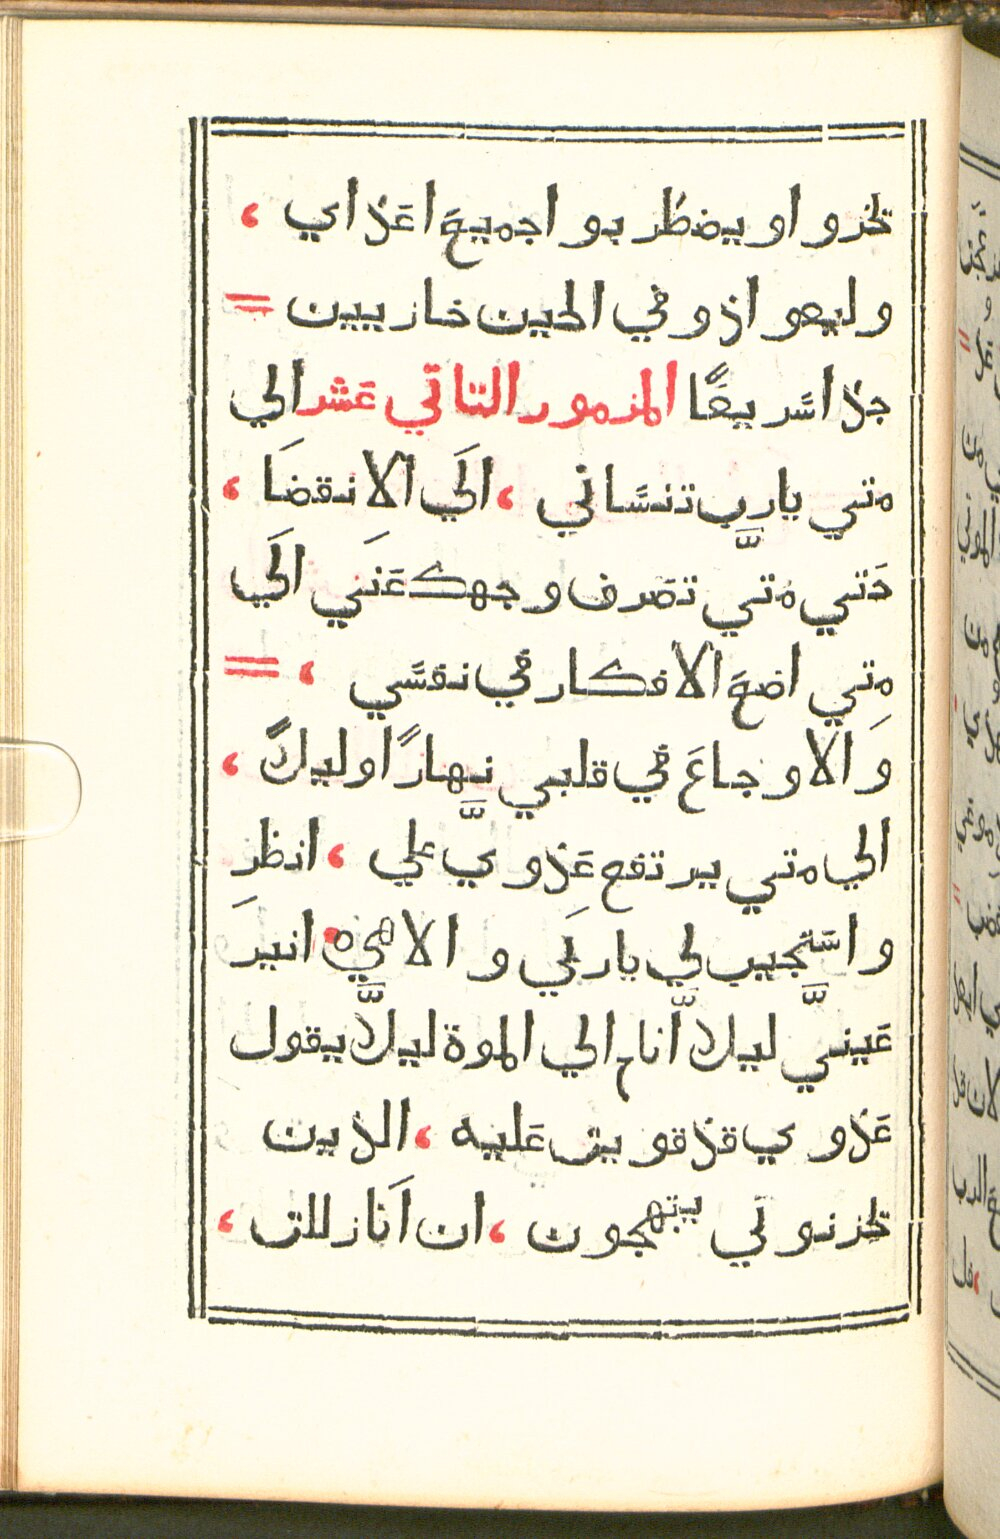 تخزو او يضطر بو اجميع اعذاي ،
وليعو اذ وفي الحين خازيين =
جذ اسريعًا المزمور التاتي عشر الي
متي يارب تنساني ، الي الانقضا ،
حتي متي تصرف وجهك عني الي
متي اضع الافكار في نفسي ، =
والاوجاع في قلبي نهارًا وليلاً ،
الي متي يرتفع عذوي علي ، انظر
واستجيب لي ياربي والاهي ، انير
عيني ليلا أنام الي الموة ليلا يقول
عذوي قذ قويت عليه ، الذين
تخزنوني يبتهجون ، ان انازللت ،